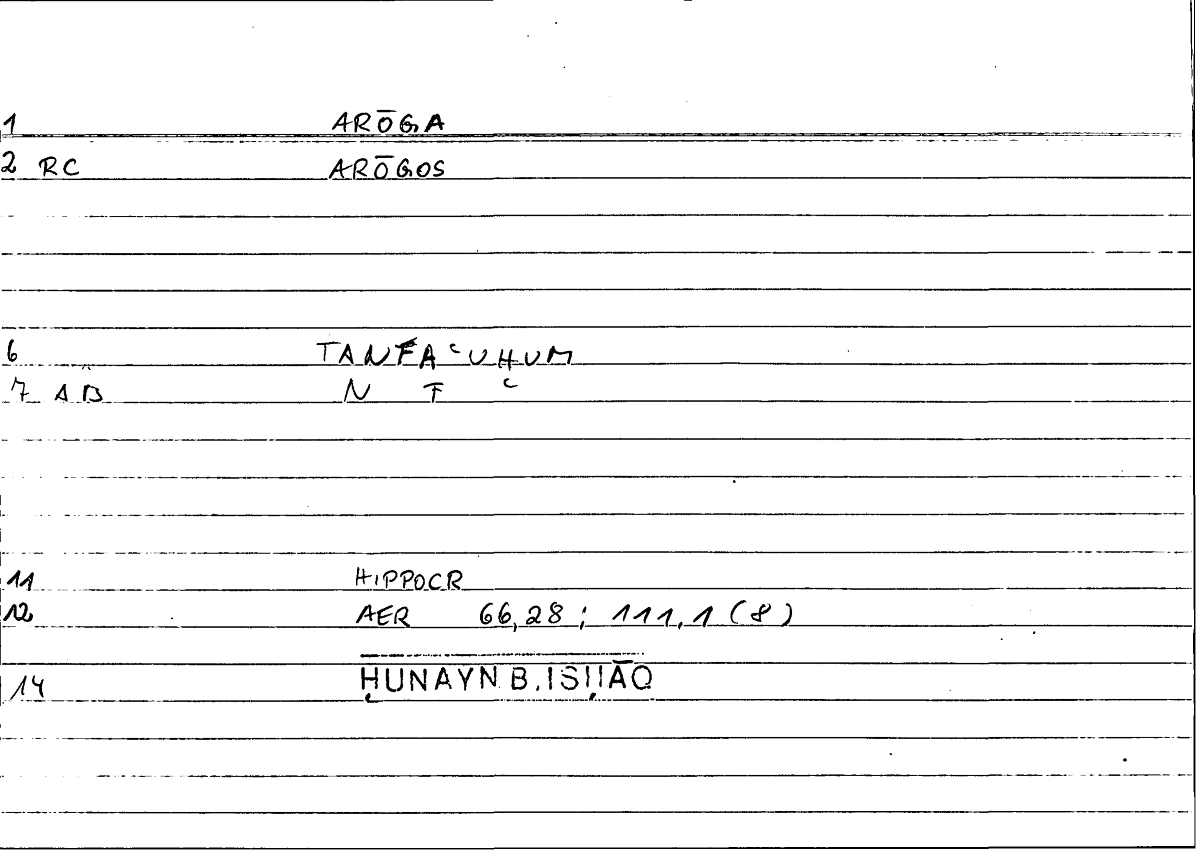 1 ARŌGA
2 RC ARŌGOS
6 TANFAʿUHUM
7 AB N F ʿ
11 HIPPOCR
12 AER 66,28 ; 111,1 (8)
14 ḤUNAYN B. ISḤĀQ